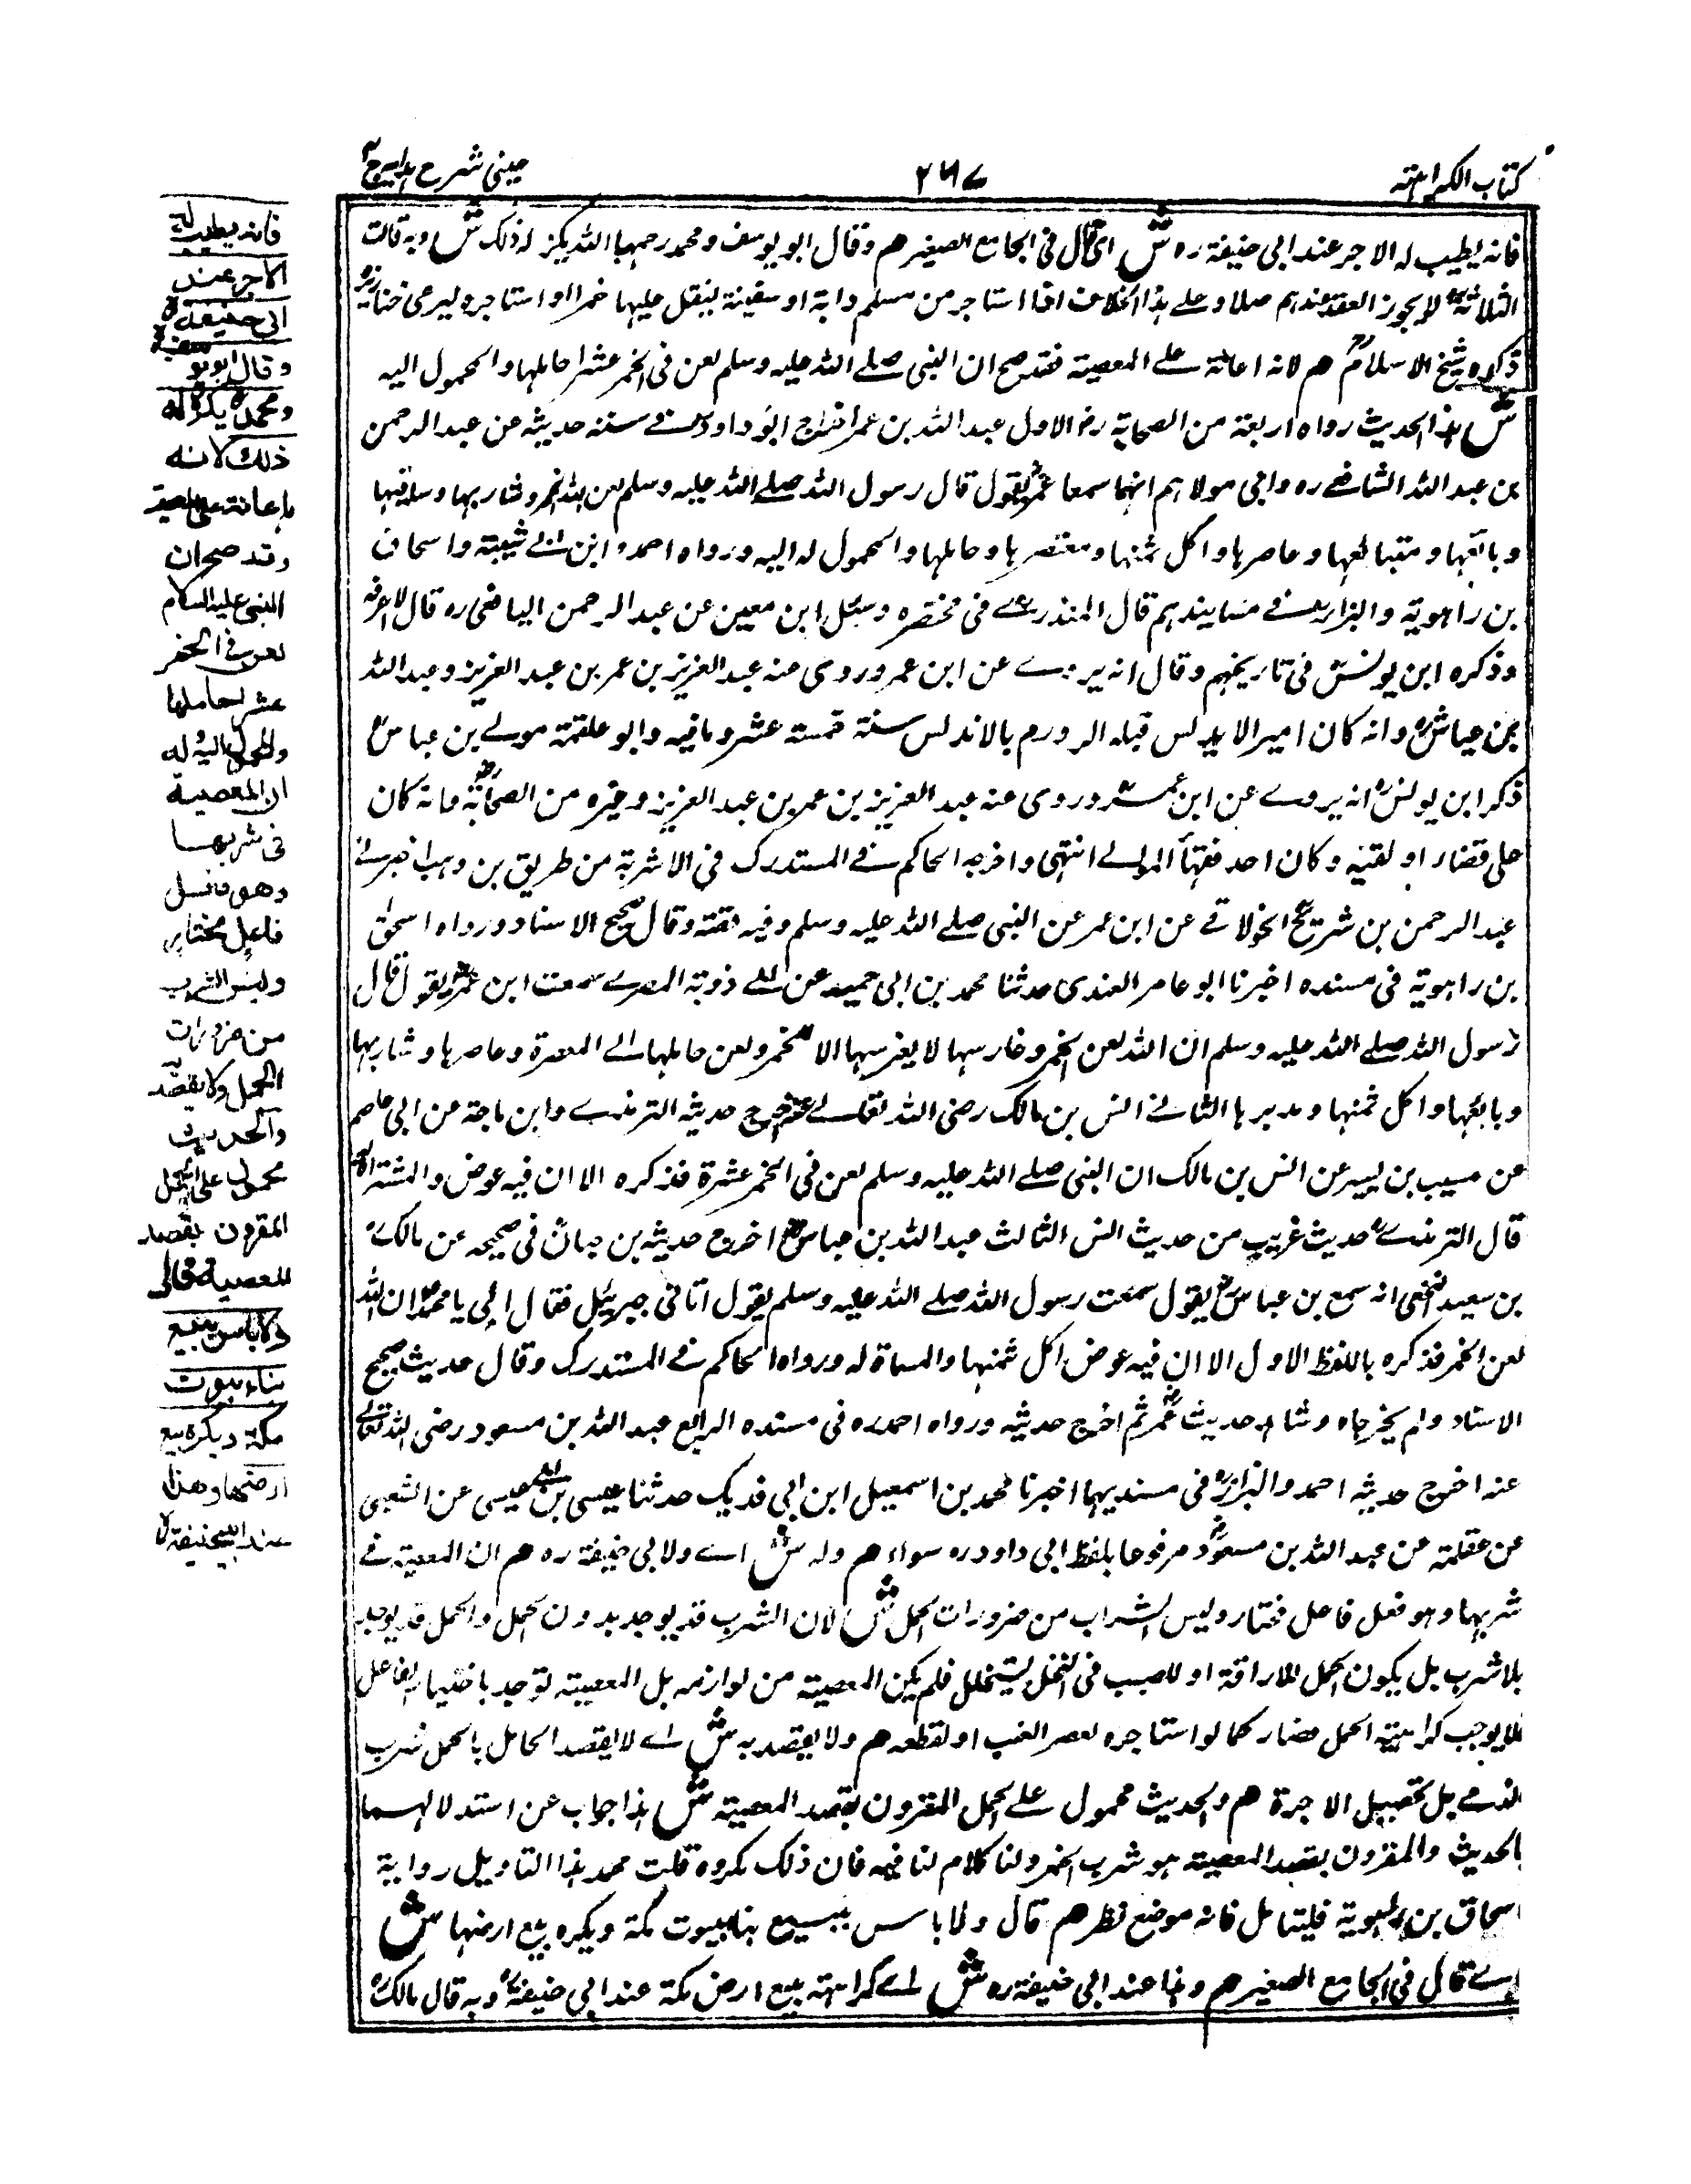 كتاب الكراهته
٢٦٧
عينى شرح هدايه ج ٤
فانه يطيب له الاجر عند ابى حنيفة ره ش اى قال فى الجامع الصغير هم وقال ابو يوسف و محمد رحمهما الله يكره له ذلك ش وبه قالت
الثلاثة لا يجوز العقد عندهم اصلا و على هذا الخلاف اذا استاجر من مسلم دابة او سفينة لينقل عليها خمرا او استاجره ليرعى خنازيره
ذكره شيخ الاسلام هم لانه اعانة على المعصية فقد صح ان النبى صلے الله عليه وسلم لعن فى الخمر عشرا حاملها و المحمول اليه
ش هذا الحديث رواه اربعة من الصحابة رض الاول عبد الله بن عمر اخرج ابو داود فى سننه حديثه عن عبد الرحمن
بن عبد الله الشافعے ره وابى مولاهم انهما سمعا عمر يقول قال رسول الله صلے الله عليه وسلم لعن الله الخمر وشاربها وساقيها
وبائعها ومبتاعها وعاصرها واكل ثمنها ومعتصرها وحاملها والمحمول له اليه ورواه احمد و ابن ابى شيبة واسحاق
بن راهوية والبزار فى مسانيدهم قال المنذرى فى مختصره وسئل ابن معين عن عبد الرحمن اليافعى ره قال لا اعرفه
وذكره ابن يونس فى تاريخهم وقال انه يروے عن ابن عمر وروى عنه عبد العزيز بن عمر بن عبد العزيز وعبد الله
بن عياش وانه كان امير الاندلس قبله الروم بالاندلس سنة خمسة عشر ومائة وابو علقمة مولے بن عباس
ذكر ابن يونس انه يروے عن ابن عمر وروى عنه عبد العزيز بن عمر بن عبد العزيز وغيره من الصحابة وانه كان
على قضاء افريقية وكان احد فقهاء الموالے انتهى واخرجه الحاكم فى المستدرك فى الاشربة من طريق بن وهب اخبرنے
عبد الرحمن بن شريح الخولانے عن ابن عمر عن النبى صلے الله عليه وسلم وفيه قصة وقال صحيح الاسناد ورواه اسحق
بن راهوية فى مسنده اخبرنا ابو عامر العقدى حدثنا محمد بن ابى حميد عن ابى توبة المصرے سمعت ابن عمر يقول قال
رسول الله صلے الله عليه وسلم ان الله لعن الخمر وغارسها لا يغرسها الا للخمر ولعن حاملها الے المعصرة وعاصرها وشاربها
وبائعها واكل ثمنها ومديرها الثانے انس بن مالك رضى الله تعالے عنه اخرج حديثه الترمذے وابن ماجة عن ابى عاصم
عن شبيب بن بشر عن انس بن مالك ان النبى صلے الله عليه وسلم لعن فى الخمر عشرة فذكره الا ان فيه عوض والمشتراة له
قال الترمذے حديث غريب من حديث انس الثالث عبد الله بن عباس اخرج حديثه بن حبان فى صحيحه عن مالك
بن سعيد انه سمع بن عباس يقول سمعت رسول الله صلے الله عليه وسلم يقول اتانى جبرئيل فقال لى يا محمد ان الله
لعن الخمر فذكره باللفظ الاول الا ان فيه عوض اكل ثمنها والمسقاة له ورواه الحاكم فى المستدرك وقال حديث صحيح
الاسناد ولم يخرجاه وشاهده حديث عمر ثم اخرج حديثه ورواه احمد ره فى مسنده الرابع عبد الله بن مسعود رضى الله تعالے
عنه اخرج حديثه احمد والبزار فى مسنديهما اخبرنا محمد بن اسمعيل ابن ابى فديك حدثنا عيسى بن ابى عيسى عن الشعبى
عن علقمة عن عبد الله بن مسعود مرفوعا بلفظ ابى داود ره سواء هم وله ش اے ولابى حنيفة ره هم ان المعصية فے
شربها وهو فعل فاعل مختار وليس الشراب من ضرورات الحمل ش لان الشرب قد يوجد بدون الحمل والحمل قد يوجد
بلا شرب بل يكون الحمل للاراقة او للصب فى الخل ليتخلل فلم يكن المعصية من لوازمه بل المعصية توجد باختيار الفاعل
فلا يوجب كراهية الحمل فصار كما لو استاجره لعصر العنب او لقطعه هم ولا يقصد به ش اے لا يقصد الحامل بالحمل شرب
الذمے بل تحصيل الاجرة هم والحديث محمول علے الحمل المقرون بقصد المعصية ش هذا جواب عن استدلالهما
بالحديث والمقرون بقصد المعصية هو شرب الخمر ولنا كلام لنا فيه فان ذلك مكروه قلت يؤيد هذا التاويل رواية
اسحاق بن راهوية فليتامل فانه موضع نظر هم قال ولا باس ببيع بناء بيوت مكة ويكره بيع ارضها ش
اے قال فى الجامع الصغير هم وهذا عند ابى حنيفة ره ش اے كراهته بيع ارض مكة عند ابى حنيفة وبه قال مالك
فانه يطيب له
الاجر عند
ابى حنيفة
وقال ابو يوسف
ومحمد يكره له
ذلك لانه
اعانة على المعصية
وقد صح ان
النبى عليه السلام
لعن فى الخمر
عشرا حاملها
والمحمول اليه له
ان المعصية
فى شربها
وهو فعل
فاعل مختار
وليس الشرب
من ضرورات
الحمل ولا يقصد به
والحديث
محمول على الحمل
المقرون بقصد
المعصية قال
ولا باس ببيع
بناء بيوت
مكة ويكره بيع
ارضها وهذا
عند ابيحنيفة